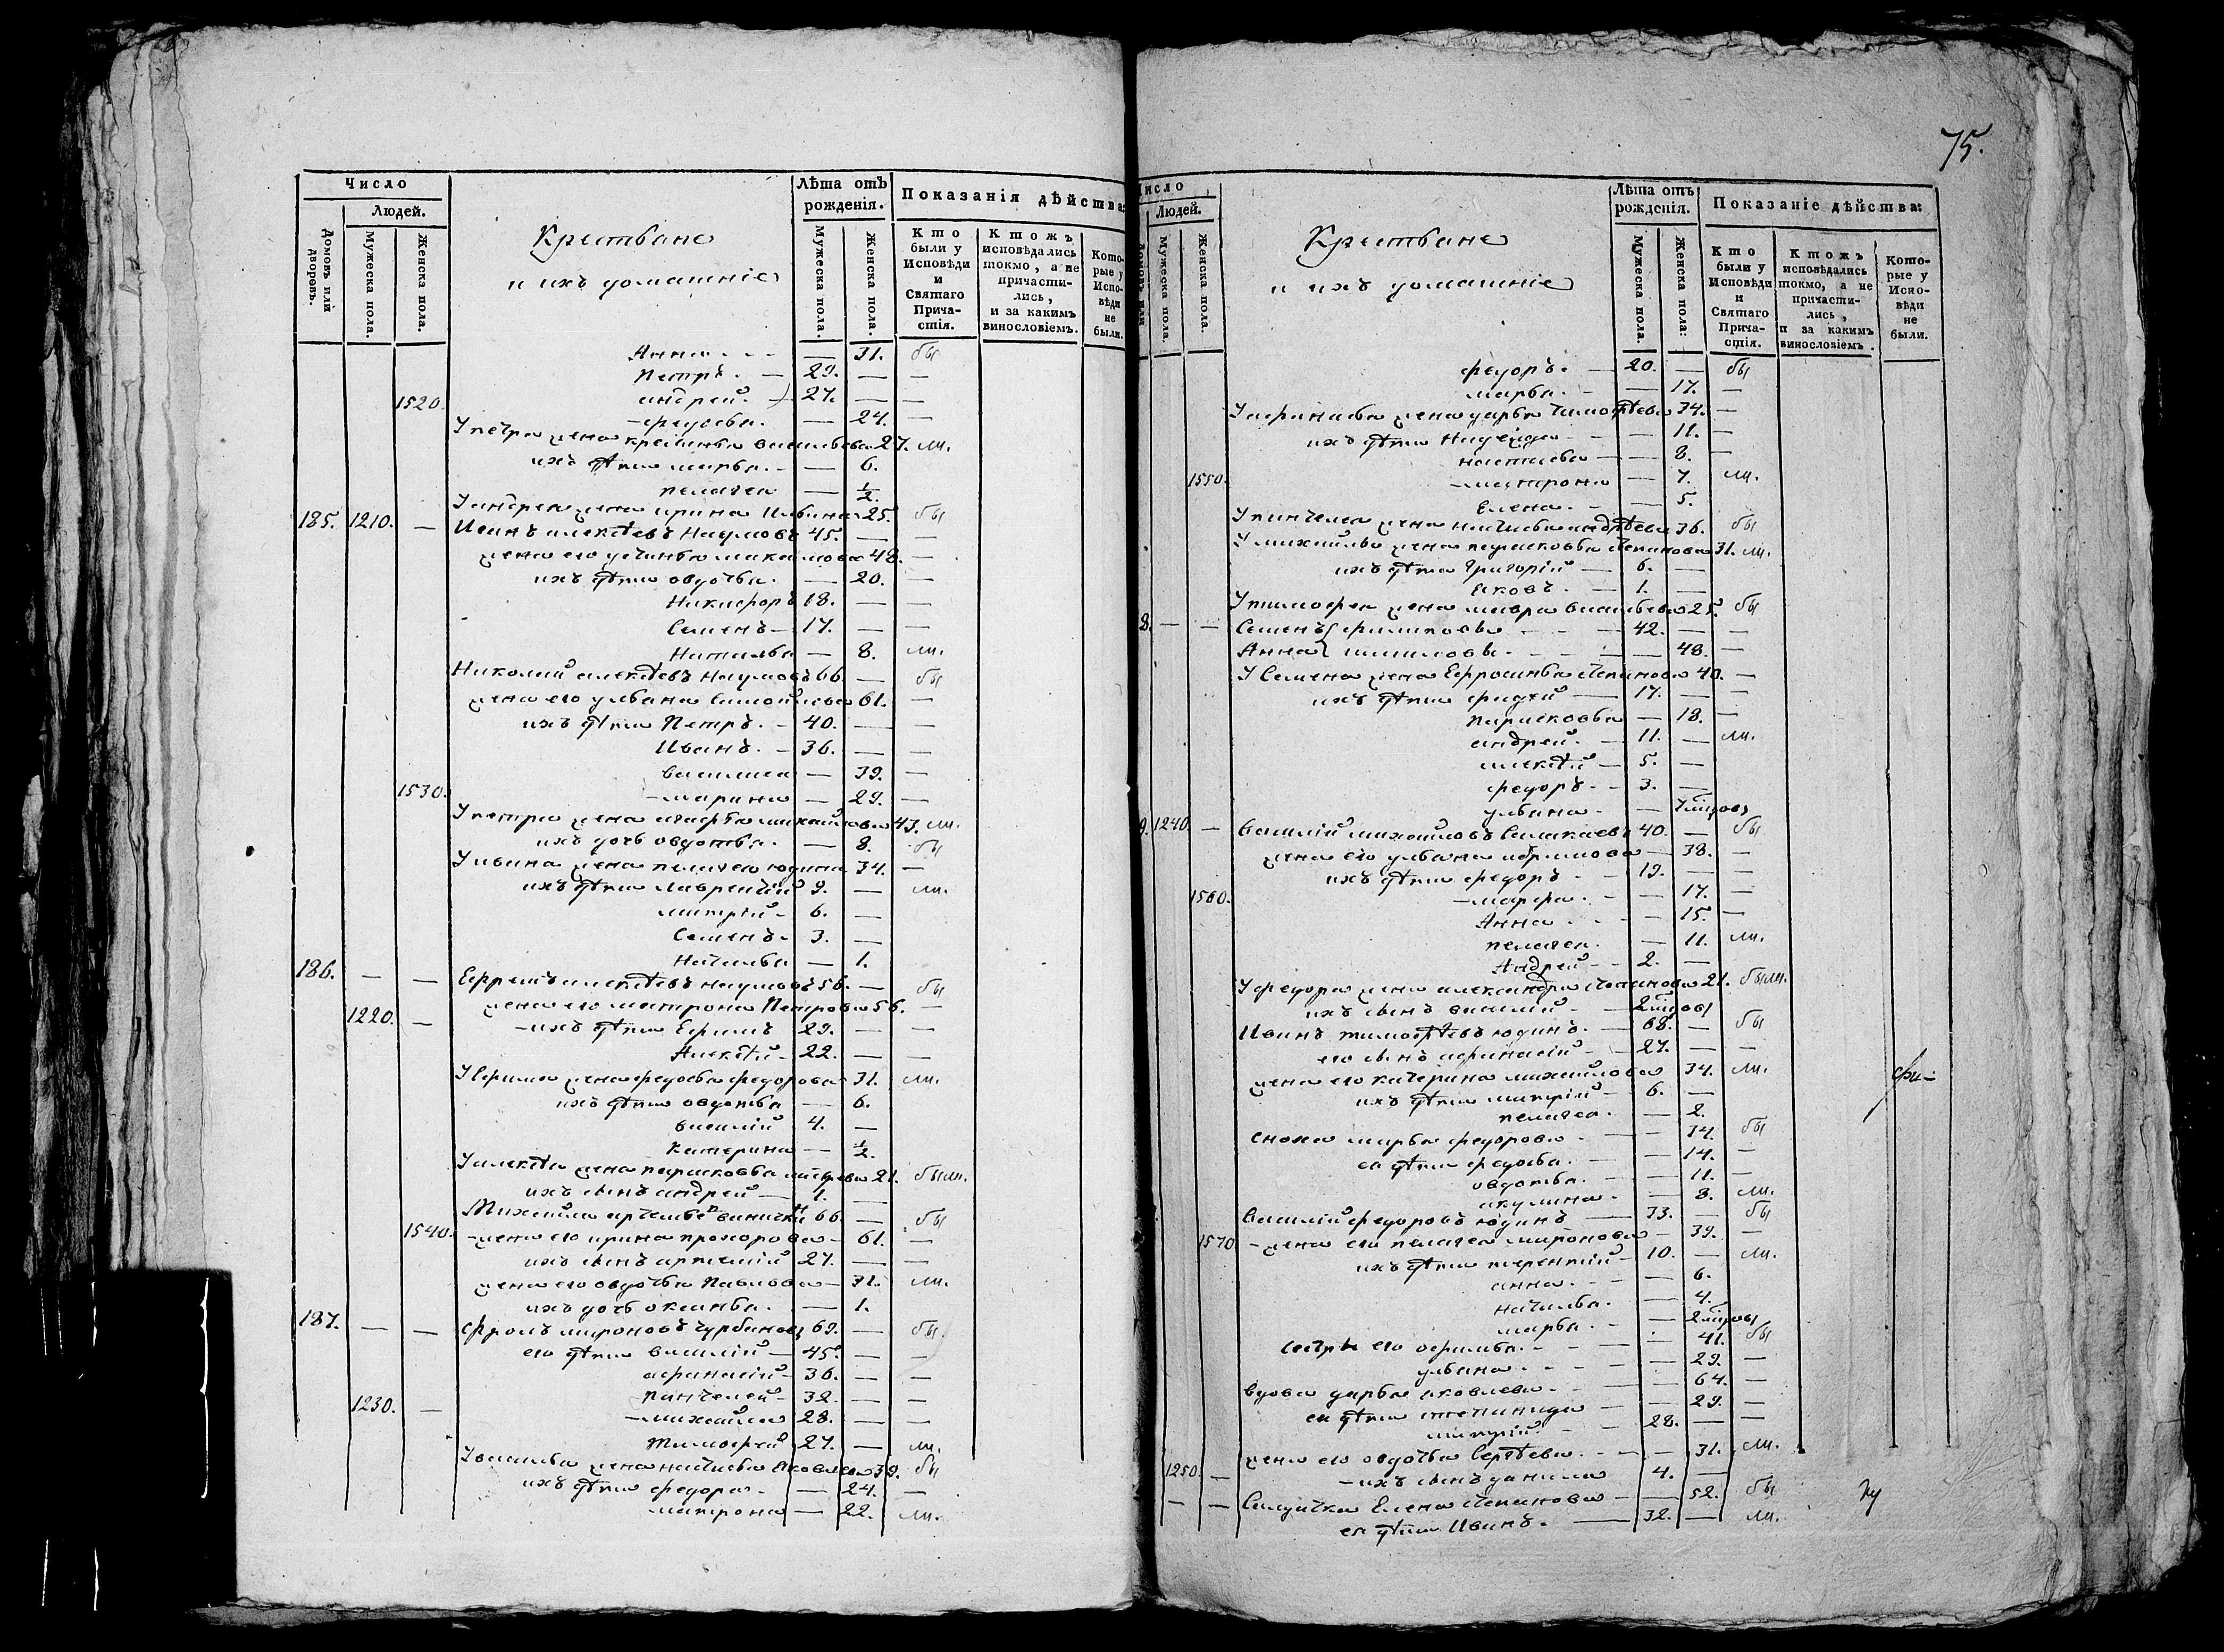 Число
Людей.
Домовъ или дворовъ.
Мужеска пола.
Женска пола.
Крестьяне
и ихъ домашніе
Лѣта отъ рожденія.
Мужеска пола.
Женска пола.
Показанія дѣйства:
Кто были у Исповѣди и Святаго Причастія.
Ктожъ исповѣдались токмо, а не причастились, и за какимъ винословіемъ.
Которые у Исповѣди не были.
Анна — 31. бы
Петръ. — 29. — —
андрей. 27. — —
1520. федосья. — 24. —
У петра жена ксенья васильева 27. ма.
ихъ дѣти марья. — 6.
пелагея — ½.
У андрея жена ирина Ильина 25. бы
185. 1210. — Иванъ алексѣевъ Наумовъ 45. — —
жена его устинья максимова 48. —
ихъ дѣти овдотья. — 20. —
Никифоръ 18. — —
Семенъ — 17. — —
Наталья — 8. ма.
Николай алексѣевъ наумовъ 66. — бы
жена его ульяна самойлова 61. —
ихъ дѣти Петръ. — 40. — —
Иванъ. — 36. — —
василиса — 39. —
1530. марина — 29. —
У петра жена агафья михайлова 43. ма.
ихъ дочь овдотья. — 8. бы
У ивана жена пелагея юдина 34. —
ихъ дѣти лаврентий 9. — ма.
митрій — 6. —
Семенъ — 3. —
Наталья — 1.
186. — — Ефремъ алексѣевъ наумовъ 56. — бы
жена его матрона Петрова 56. —
1220. — ихъ дѣти Ефимъ 29. — —
Алексѣй — 22. — —
У Ефима жена федосья федорова 31. ма.
ихъ дѣти овдотья — 6.
василий 4. —
Катерина — ½.
У алексѣя жена парасковья 21. бы ма.
ихъ сынъ андрей — 1. —
Михаила 66. — бы
1540. жена его ирина прохорова — 61. —
ихъ сынъ артемій 27. — —
жена его овдотья Павлова — 31. ма.
ихъ дочь оксинья. — 1.
187. — — фролъ мироновъ 69. — бы
его дѣти василій — 45. — —
афанасій — 36. — —
Пантелей — 32. — —
1230. — михайла 28. — —
Тимофей 27. — ма.
У василья жена настасья Яковлева 39. бы
ихъ дѣти федора — — 24. —
матрона — 22. ма.
75.
Число
Людей.
Мужеска пола.
Женска пола.
Крестьяне
и ихъ домашніе
Лѣта отъ рожденія.
Мужеска пола.
Женска пола:
Показаніе дѣйства:
Кто были у Исповѣди и Святаго Причастія.
Ктожъ исповѣдались токмо, а не причастились, и за какимъ винословіемъ.
Которые у Исповѣди не были.
федоръ. — 20. — бы
марья. — — 17. —
У афанасья жена дарья тимофѣева 34. —
ихъ дѣти Надежда — — 11. —
настасья — — 8. —
1550. матрона — 7. ма.
Елена. — — 5.
У пантелея жена наталья андрѣева 36. бы
У михайлы жена парасковья степанова 31. ма.
ихъ дѣти Григорій — 6. —
яковъ. — 1. —
У тимофея жена мавра васильева 25. бы
8. — — Семенъ филиповы — 42. — —
Анна — 48. —
У Семена жена Ефросинья степанова 40. —
ихъ дѣти — 17. — —
парасковья — 18. —
андрей. — 11. — ма.
алексѣй — 5. —
федоръ — 3. —
ульяна —
9. 1240. — василій михайловъ 40. — бы
жена его ульяна абрамова — 38. —
ихъ дѣти федоръ — 19. — —
1560. марфа. — — 17. —
Анна — — 15. —
пелагея. — 11. ма.
Андрей — 2. —
У федора жена александра степанова 21. бы ма.
ихъ сынъ василій —
Иванъ тимофѣевъ юдинъ. — 68. — бы
его сынъ афанасій — 27. — —
жена его катерина михайлова 34. ма.
ихъ дѣти митрій — 6. —
пелагея. — 2.
сноха марья федорова — — 34. бы
ея дѣти федосья. — — 14. —
овдотья. — — 11. —
акулина. — — 8. ма.
василій федоровъ юдинъ — 33. — бы
1570 жена его пелагея миронова — 39. —
ихъ дѣти терентий — 10. — ма.
анна. — — 6.
наталья. — — 4.
марья. —
сестры его — 41. бы
ульяна — — 29. —
вдова дарья яковлева. — — 64. —
ея дѣти степанида — — 29. —
митрій. — 28. — —
жена его овдотья Сергѣева. — — 31. ма.
1250. — ихъ сынъ данила 4. —
— — Салдатка Елена степанова — — 52. бы
ея дѣти Иванъ. — 32. — ма.